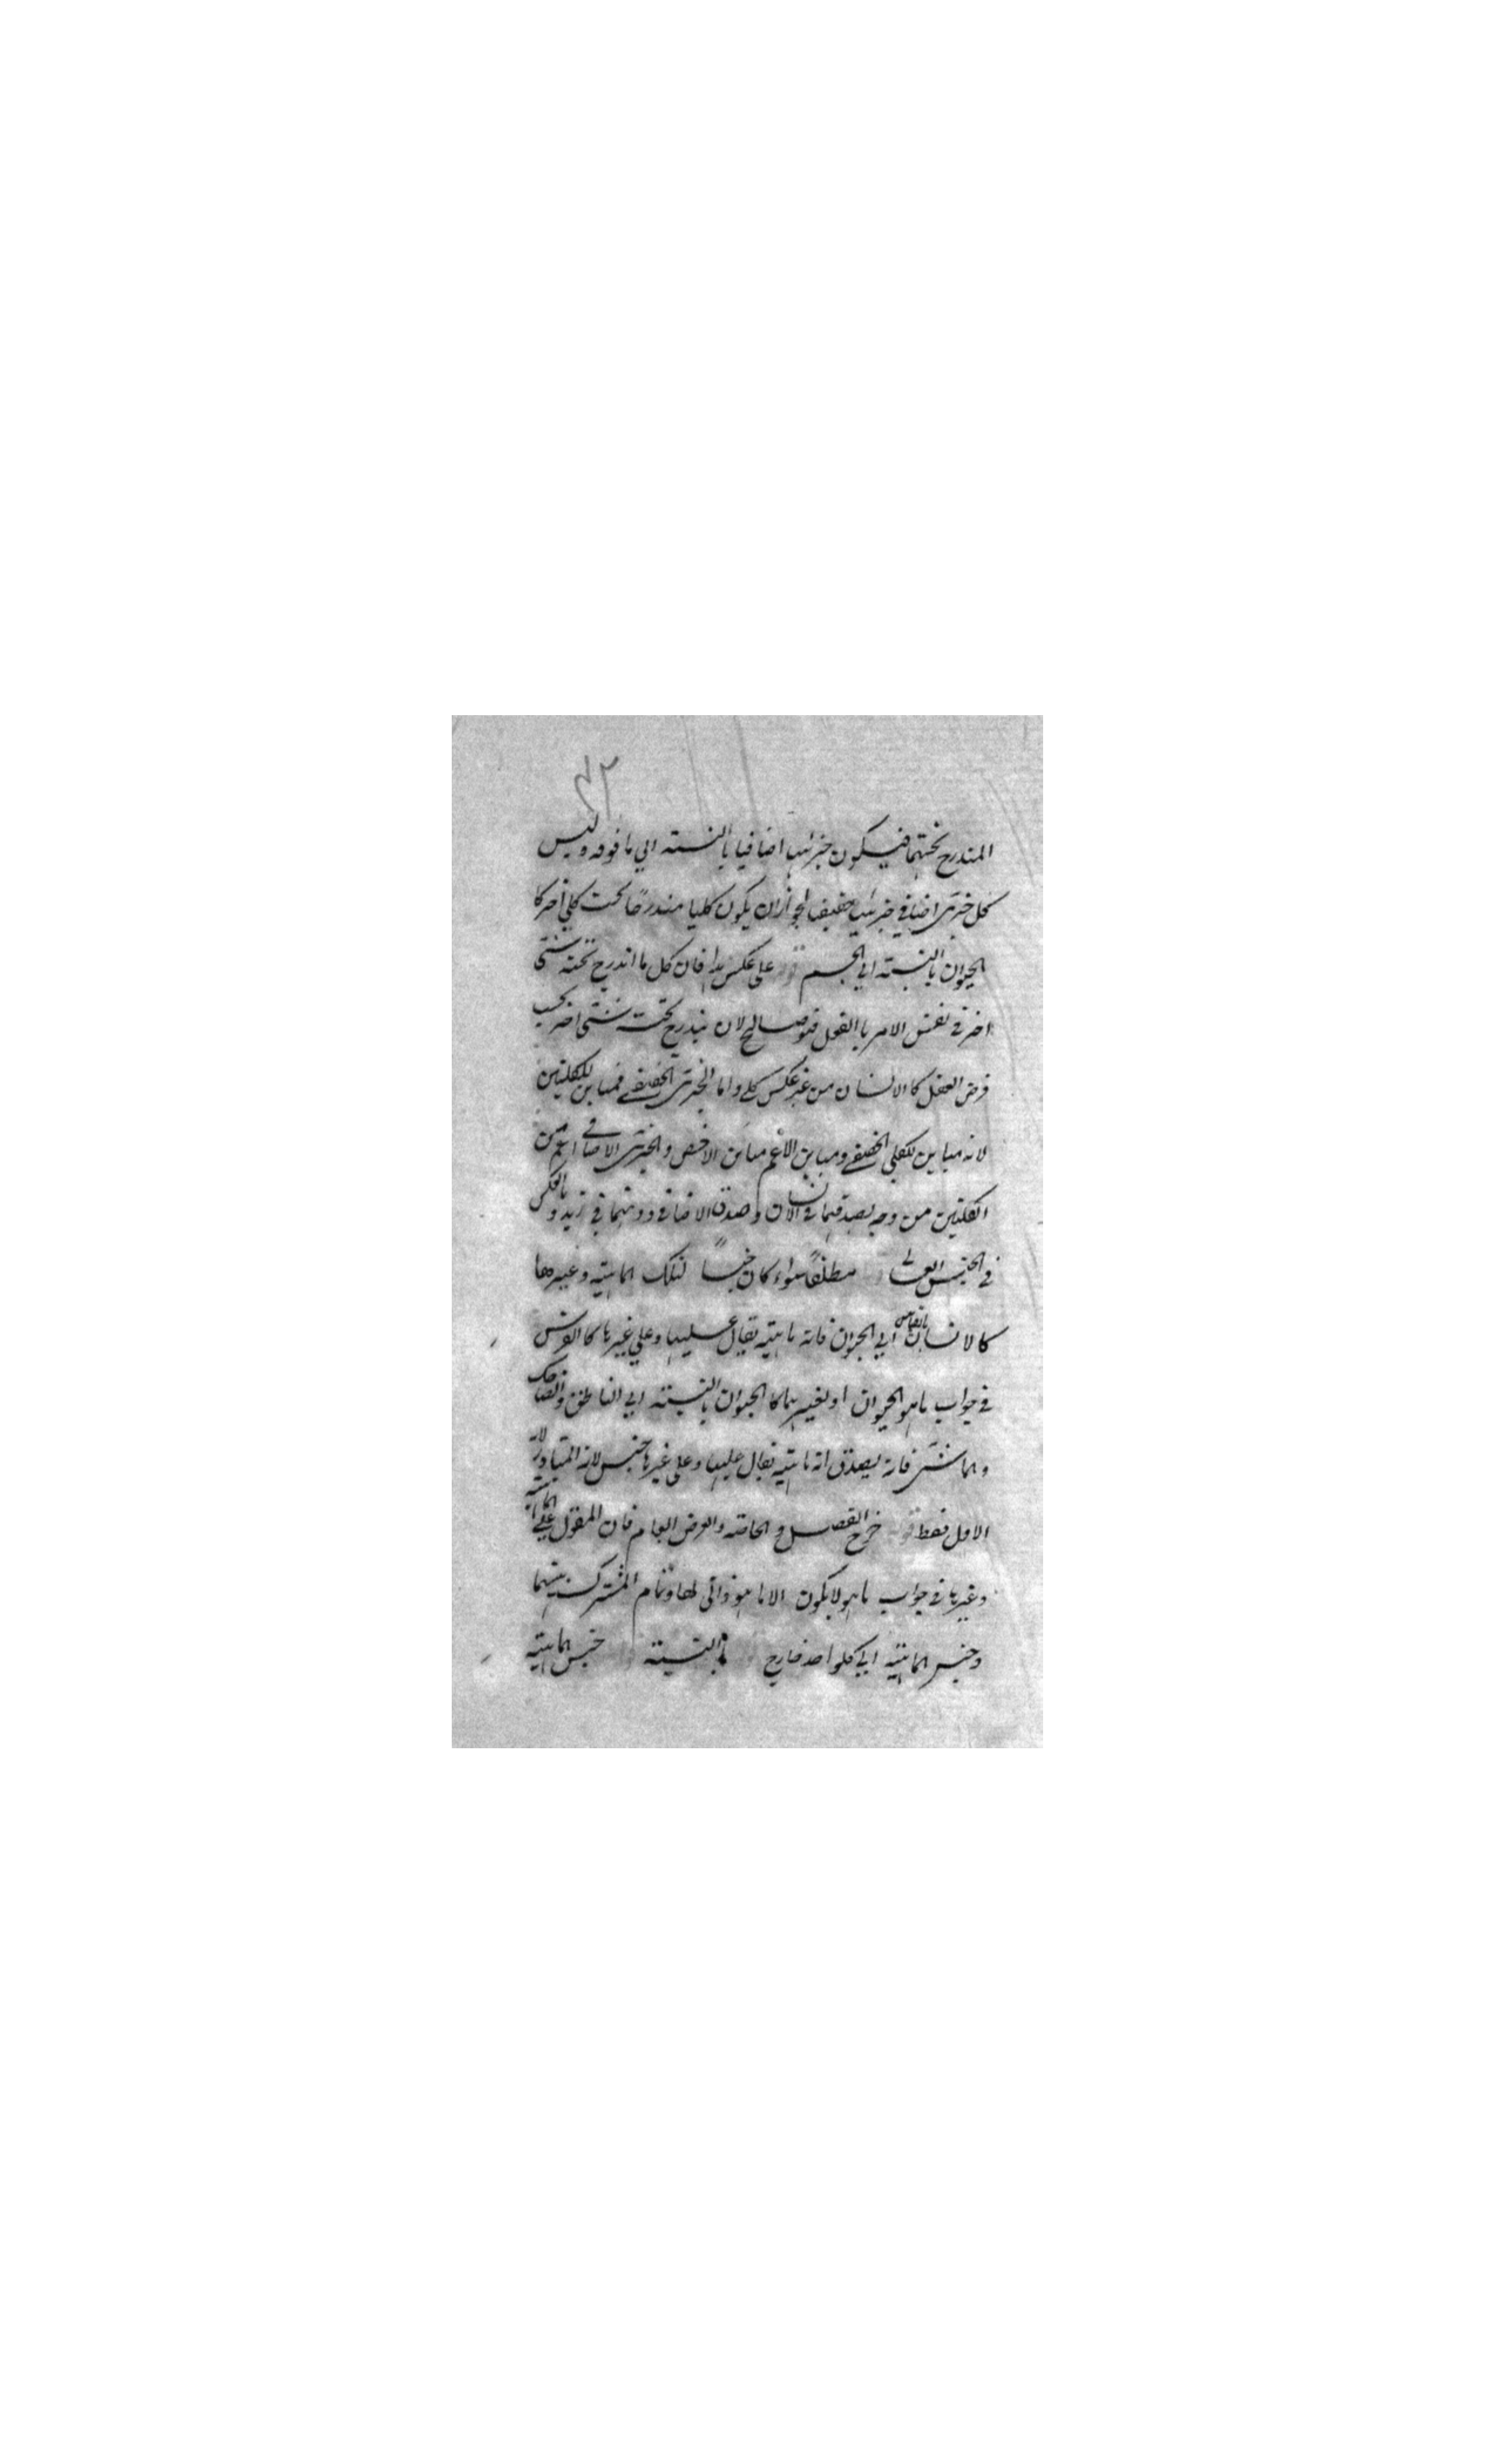 ٣٢
المندرج تحتهما فيكون جزئيا اضافيا بالنسبته الي ما فوقه وليس
كل جزئى اضافي جزئيا حقيقيا لجواز ان يكون كليا مندرجا تحت كلي اخر كا
لحيوان بالنسبته الي الجسم قو علي عكس هذا فان كل ما اندرج تحته شئى
اخر في نفس الامر باالفعل فهو صالح لان يندرج تحته شئى اخر بحسب
فرض العقل كالانسان من غير عكس كلے واما الجزئى الحقيقے فمباين للكليتين
لانه مباين للكلي الحقيقے ومباين الاعم مباين الاخص والجزئى الاضافے اعم من
الكليتين من وجه لصدقهما في الانسان وصدق الاضافي دونهما في زيد وبالعكس
في الجنس العالے مطلقًا سواء كان جنسًا لتلك الماهيته وغيرها
كالانسان بالقياس الي الحيوان فانه ماهيته يقال عليها وعلي غيرها كالفرس
في جواب ماهو الحيوان او لغيرهما كالحيوان بالنسبته الي الناطق والضاحك
والماشى فانه يصدق انه ماهيته يقال عليها وعلي غيرها جنس لانه المتبادر لانه
الاول فقط قو خرج الفصل والخاصته والعرض العام فان المقول علي الماهيته
وغيرها في جواب ماهو لايكون الا ما هو ذاتي لها وتمام المشترك بينهما
وجنس الماهيته الي كلواحد خارج بالنسبته جنس الماهيته